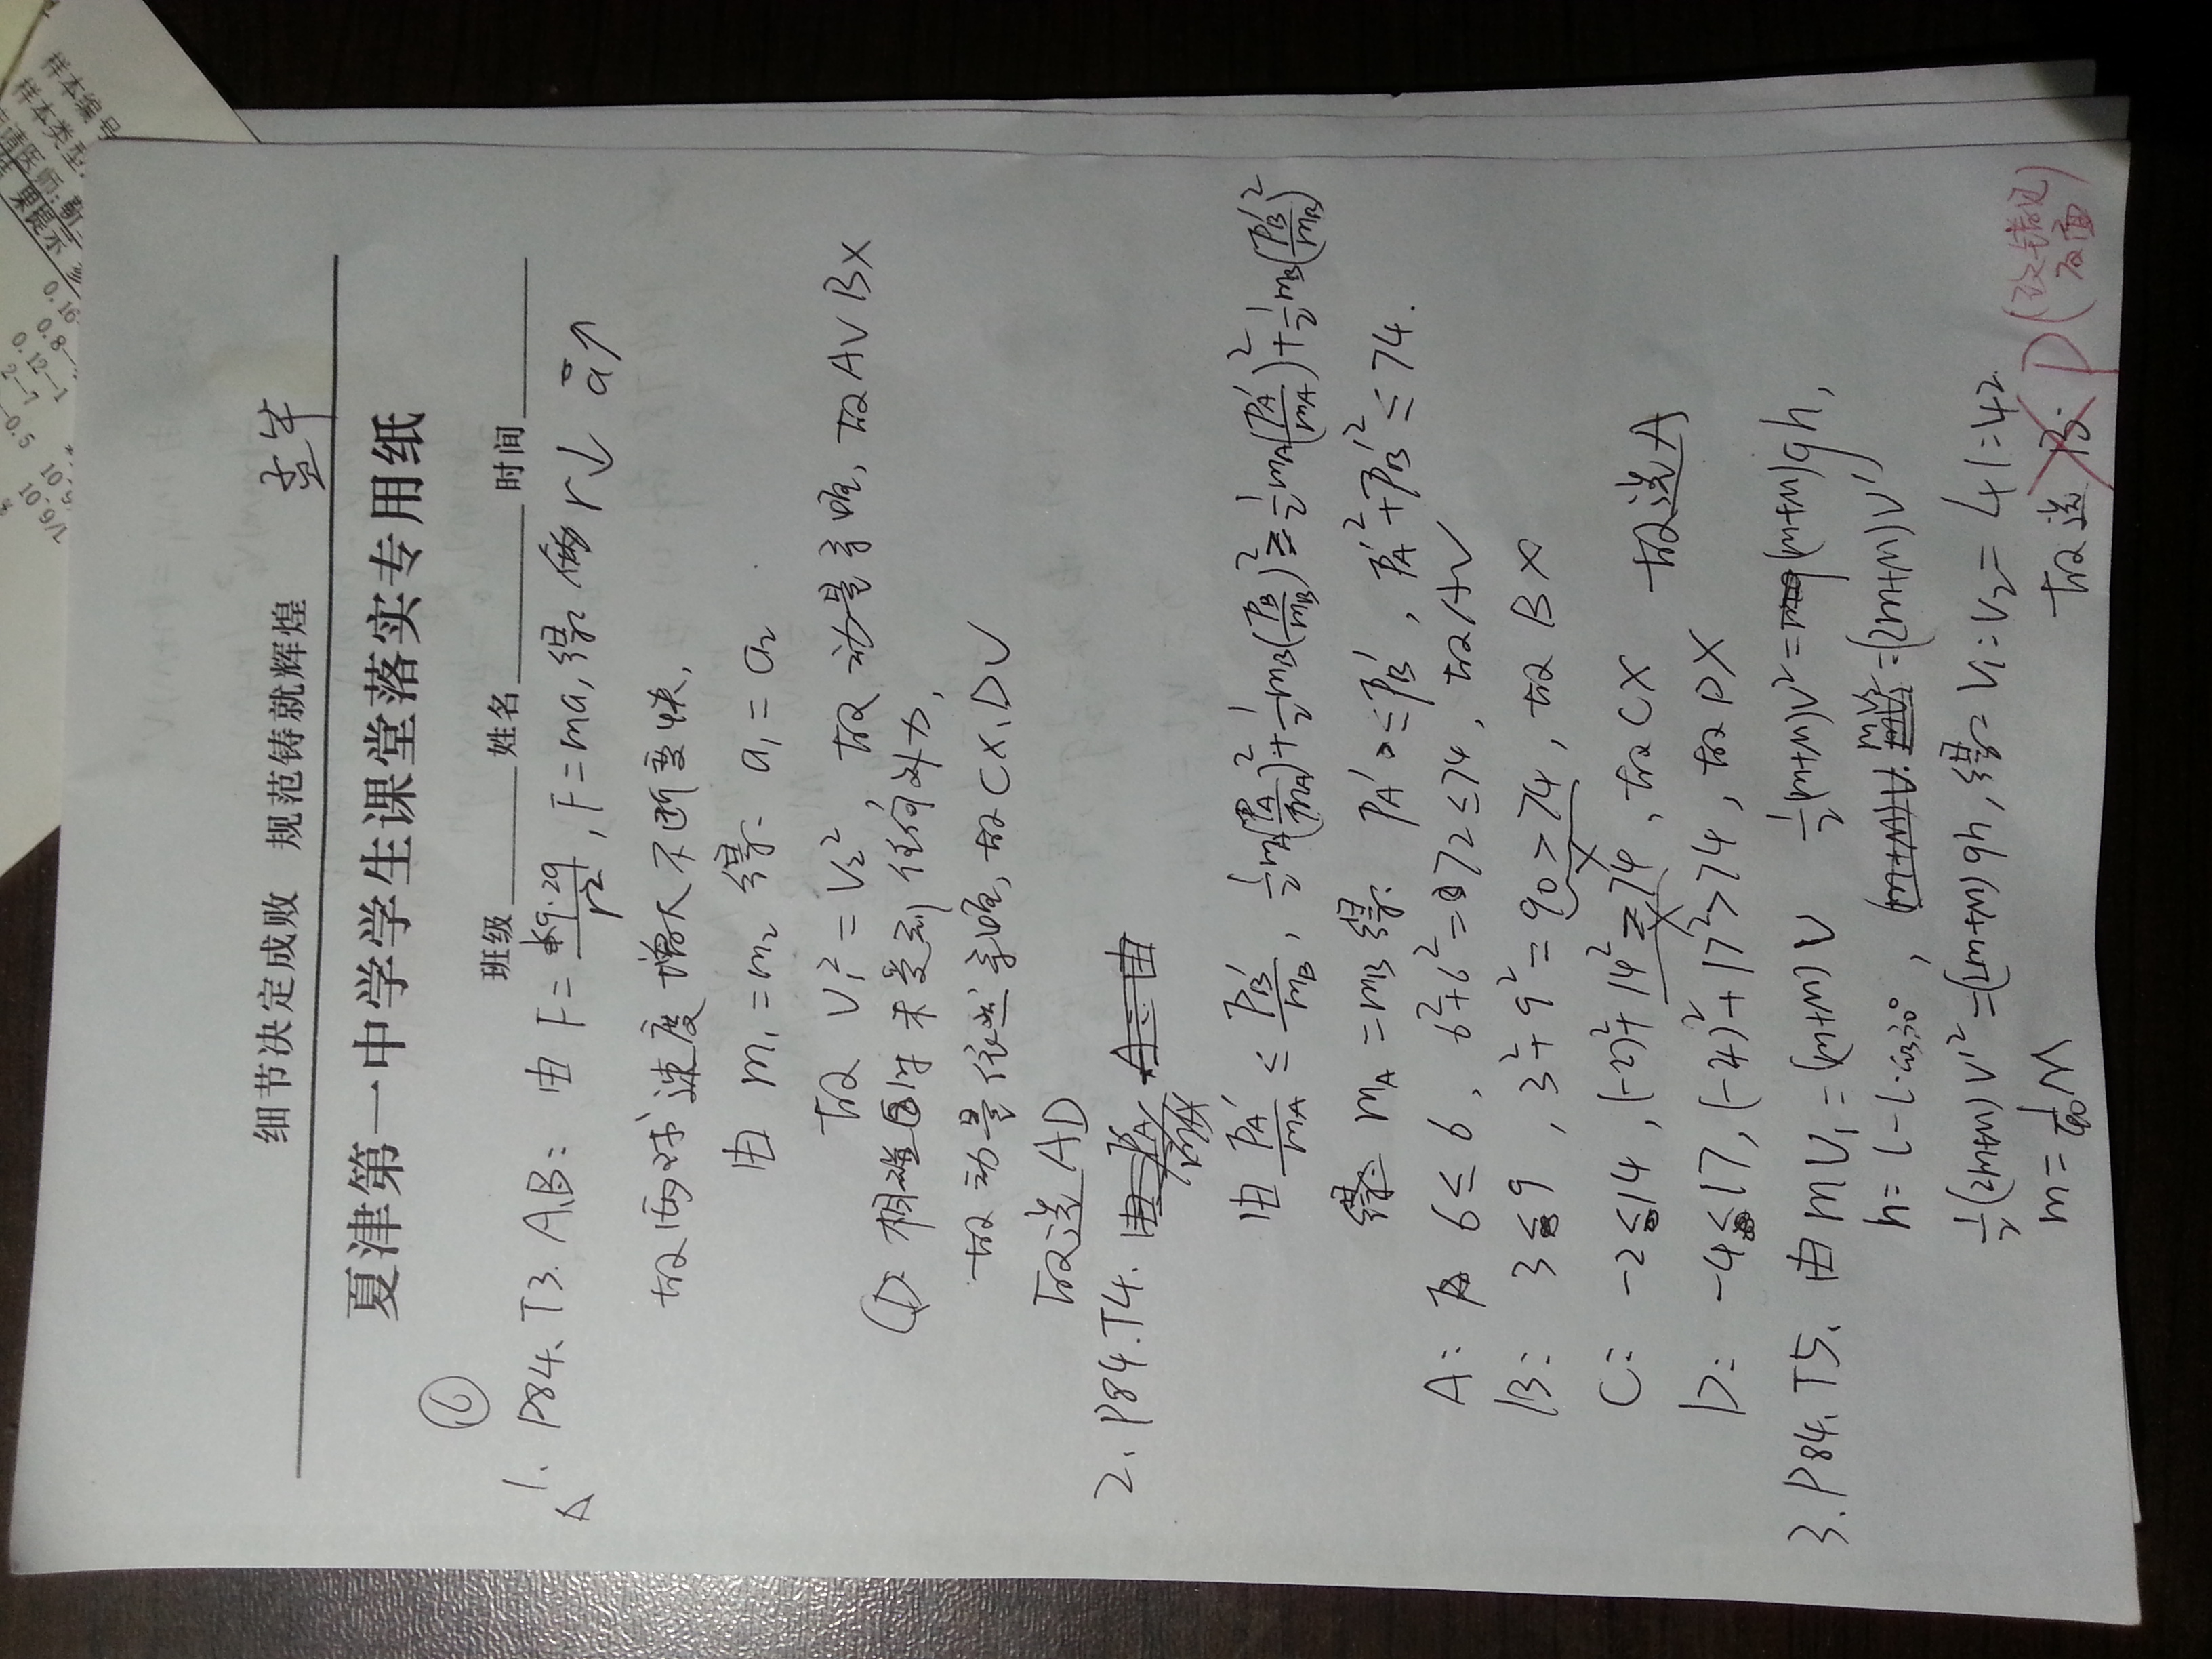 细节决定成败 规范铸就辉煌
夏津第一中学学生课堂落实专用纸
⑥
班级 姓名 时间
1. P84. T3. A.B: 由 F = kq·2q/r², F=ma, 得 r↓ a↑
故两球速度增大不断变快,
由 m₁=m₂ 得 a₁=a₂
故 V₁²=V₂², 故动量守恒, 故A√ B×
相碰时未受到任何外力,
故动量依然守恒, 故C×、D√
故选AD
2. P84. T4.
由 PA'/mA ≤ PB'/mB, ½mA(PA/mA)²+½mB(PB/mB)² ≥ ½mA(PA'/mA)²+½mB(PB'/mB)²
mA=mB 得 PA' ≤ PB', PA'²+PB'² ≤ 74.
A: 6≤6, 6²+6²=72≤74, 故A√
B: 3≤9, 3²+9²=90>74, 故B×
×
C: -2≤14, (-2)²+14²≥74, 故C× 故选A
×
D: -4≤17, (-4)²+17²>74, 故D×
3. P84. T5. 由 mV₁=(m+M)V ½(m+M)V²=(m+M)gh,
h=l-l·cos30°, mV₂=(2m+M)V'
½(2m+M)V'²=(2m+M)gh, 得 V₁:V₂=41:42
m=1/40 M 故选 B. D (改错见
反面)